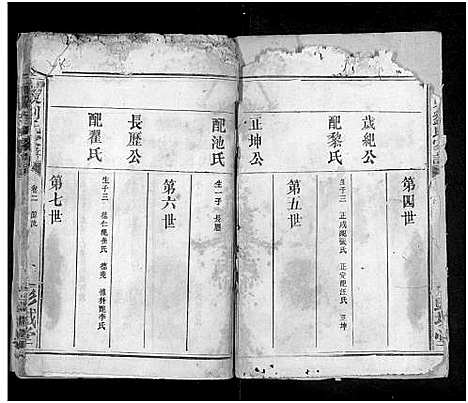 第四世
歲紀公
配黎氏
生子三 正成配張氏 正安配汪氏 正坤
第五世
正坤公
配池氏
生一子 長歷
第六世
長歷公
配翟氏
生子三 德仁配秦氏 德堯 德舜配李氏
第七世
卷二
彭城堂